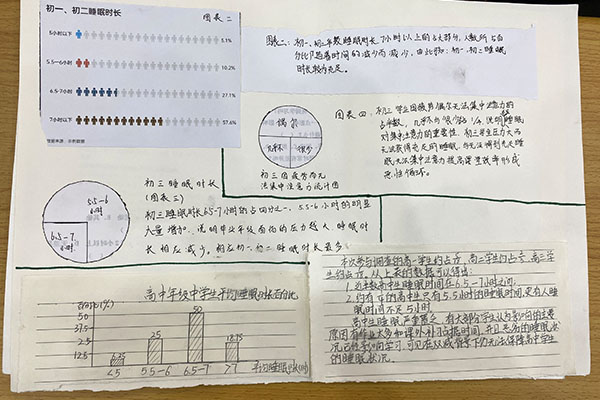 初一、初二睡眠时长
图表二
5小时以下
5.1%
5.5—6小时
10.2%
6.5-7小时
27.1%
7小时以上
57.6%
图表二:初一、初二年级睡眠时长7小时以上的占大部分,人数所占百
分比随着时间的减少而减少,由此知:初一、初二睡眠
时长较为充足。
偶尔
几乎不
很少
初三因疲劳而无
法集中注意力统计图
图表四:初三学生因疲劳偶尔无法集中注意力的
占半数,几乎不与很少各占1/4,说明睡眠
对集中注意力的重要性,初三学生压力大而
无法获得充足的睡眠,
性循环。
5.5-6
小时
6.5-7
小时
初三睡眠时长
(图表三)
初三睡眠时长6.5-7小时的占四分之一,5.5-6小时的明显
大量增加,说明毕业年级面临的压力越大,睡眠时
长相应减少。相反初一初二睡眠时长最多
高中年级中学生平均睡眠时长百分比
百分比(%)
50
37.5
25
12.5
6.25
25
50
18.75
<5
5.5-6
6.5-7
>7
平均睡眠时长(h)
本次参与调查的高一学生约占,高二学生约占,高三学
生约占。从上表的数据可以得出:
1.近半数高中生睡眠时间在6.5-7小时之间。
2.约有的高中生只有5.5小时的睡眠时间,更有人睡
眠时间不足5小时
高中生睡眠严重匮乏,有大部分学生认为影响的主要
原因有作业太多和课外补习占据时间,并且长期的睡眠状
况已经影响学习,可见在双减背景下仍无法保障高中学生
的睡眠状况。